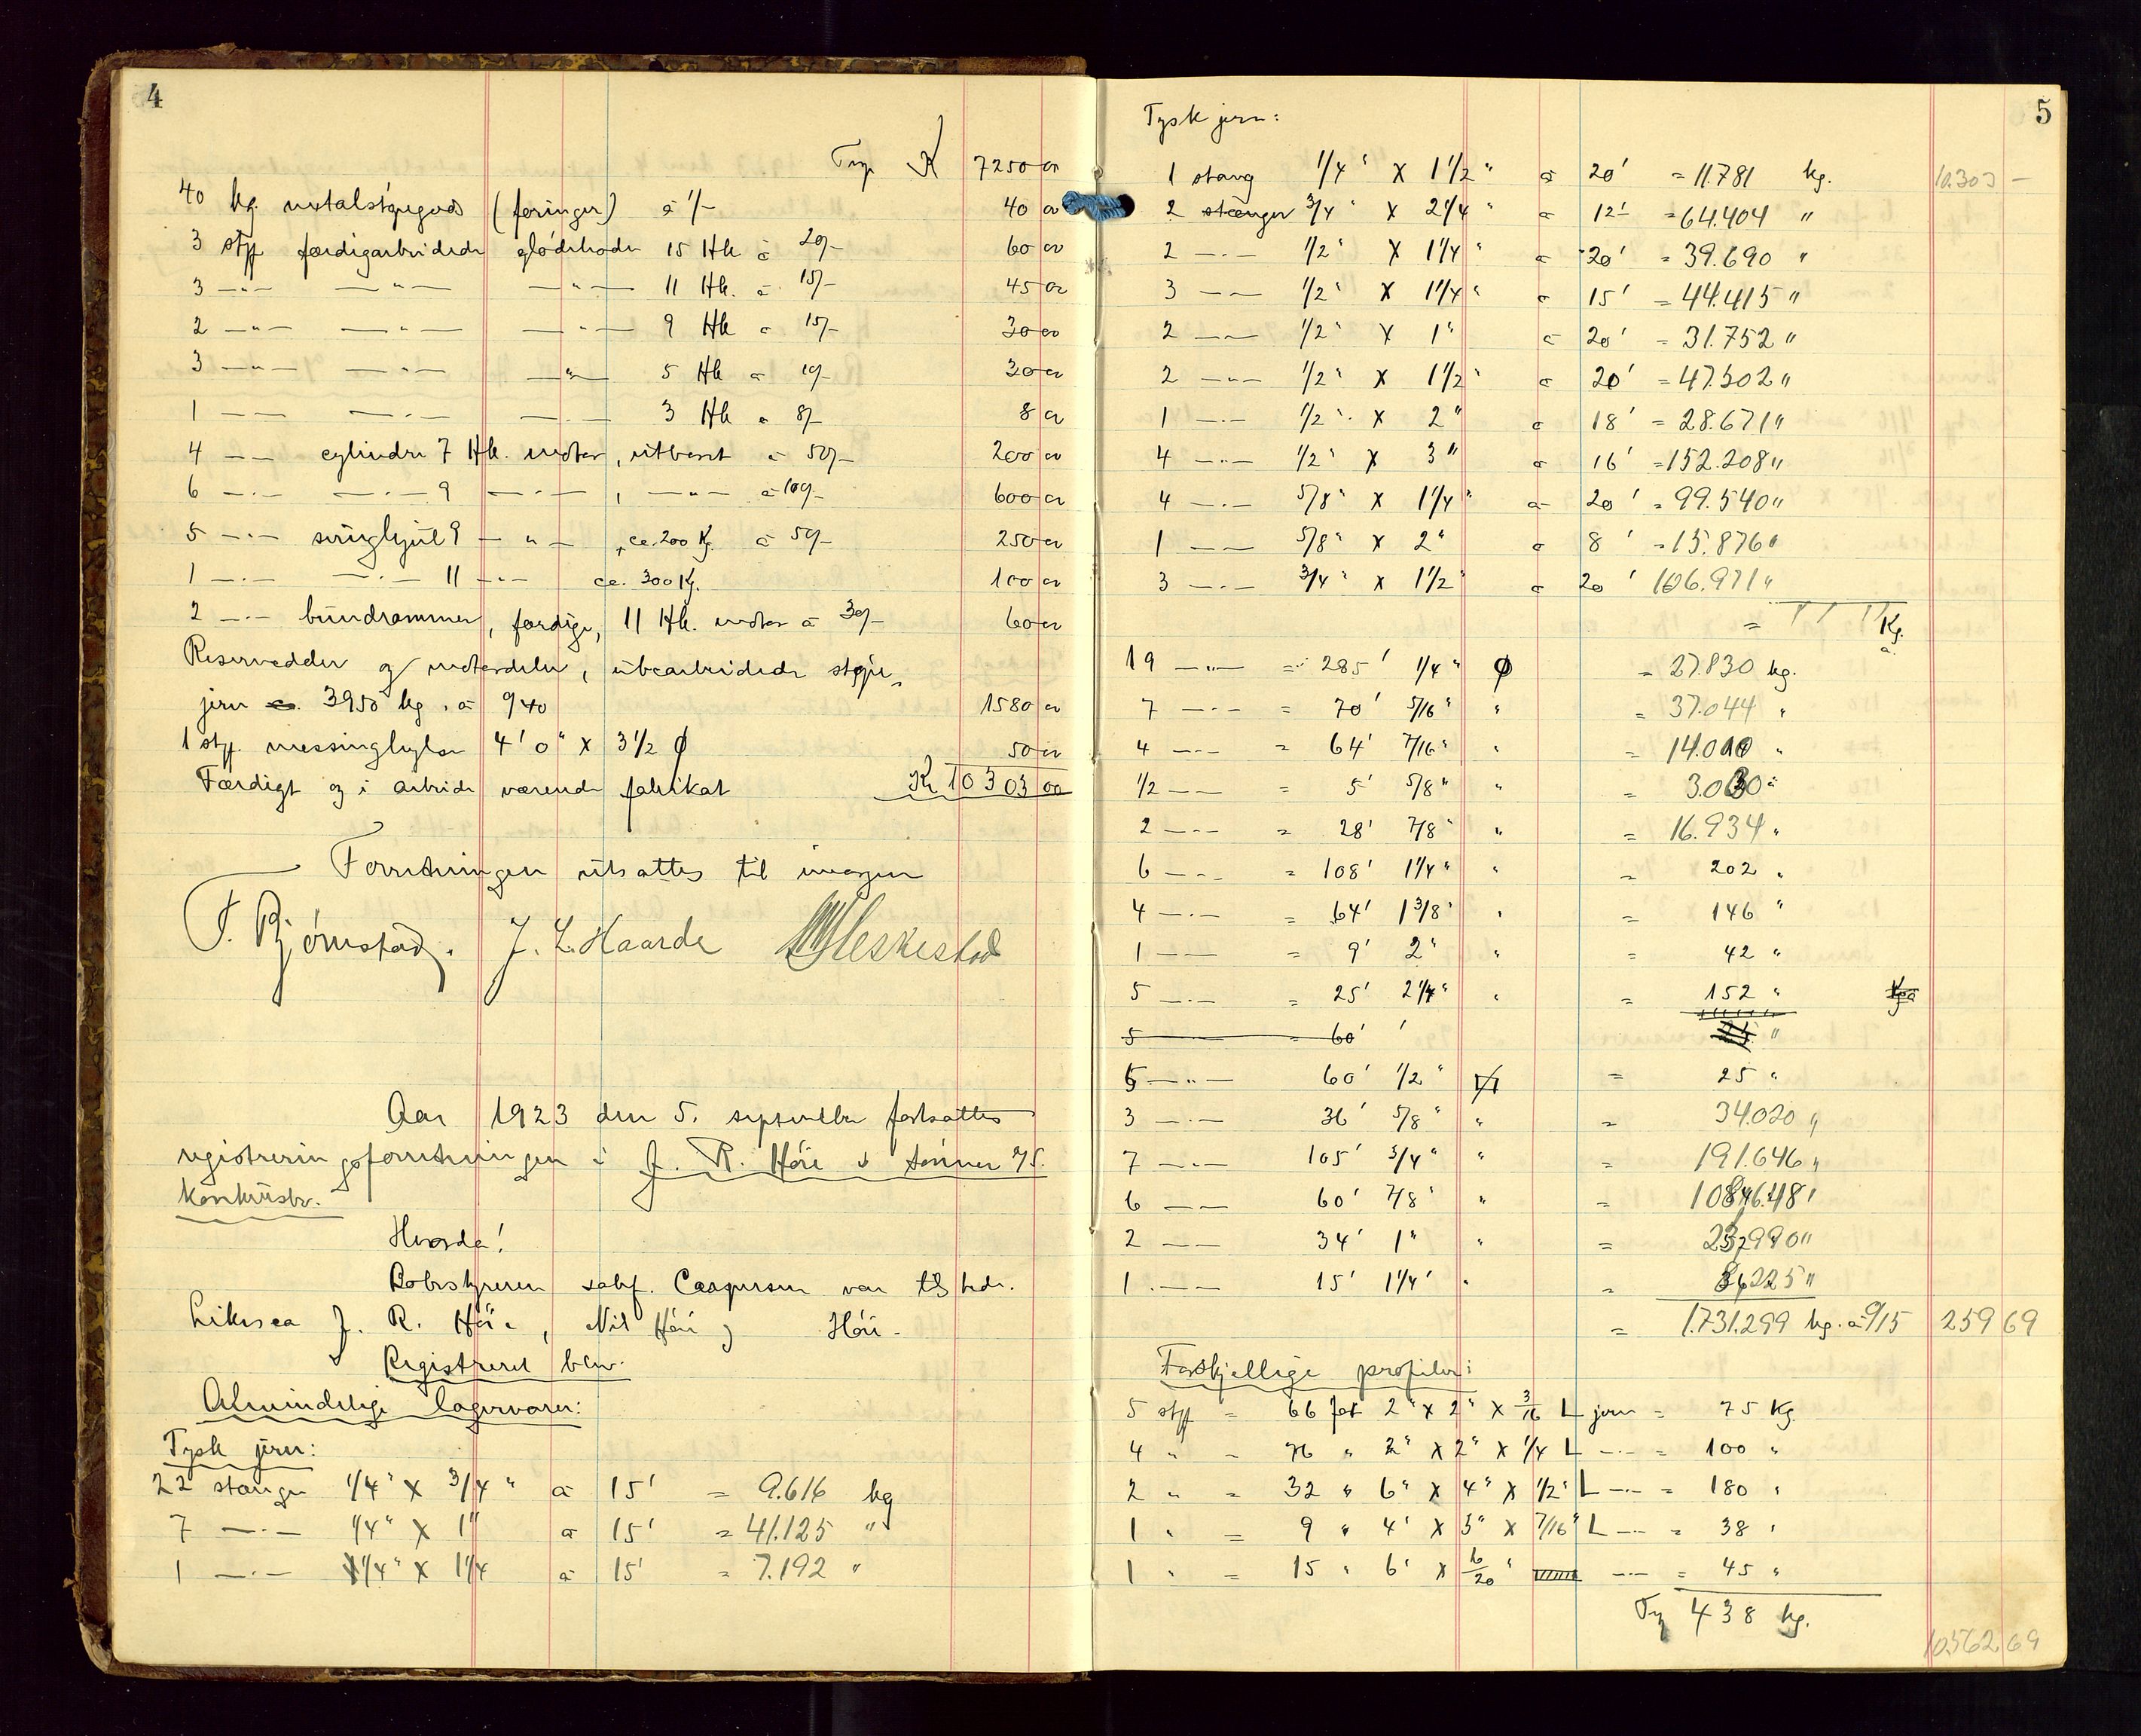 4
Trp Kr 7250 00
40 kg. metalstøpegods (foringer) á 1/- 40 00
3 stp færdigarbeidede glødehoder 15 Hk á 20/- 60 00
3 —"— —"— —"— 11 Hk. á 15/- 45 00
2 —"— —"— —"— 9 Hk á 15/- 30 00
3 —"— —"— —"— 5 Hk á 10/- 30 00
1 —"— —"— —"— 3 Hk á 8/- 8 00
4 —"— cylindre 7 Hk. motor, utboret á 50/- 200 00
6 —"— —"— 9 —"—, —"— á 100/- 600 00
5 —"— svinghjul 9 —"—, ca. 200 Kg. á 50/- 250 00
1 —"— —"— 11 —"— ca. 300 Kg. 100 00
2 —"— bundrammer, færdige, 11 Hk. motor á 30/- 60 00
Reservedeler og motordeler, ubearbeidede støpe-
jern ca. 3950 kg. á 0/40 1580 00
1 stp. messinghylse 4' 0" X 3 1/2 φ 50 00
Færdigt og i arbeide værende fabrikat Kr 10303 00
Forretningen utsattes til imorgen
T. Bjørnstad. J. L. Haarde Heskestad
Aar 1923 den 5. september fortsattes
registreringsforretningen i J. R. Høie & sønner A/S.
konkursbo.
Hvorda!
Bobestyreren sakf. Caspersen var tilstede.
Likesaa J. R. Høie, Nils Høie og Høie.
Registreret blev:
Almindelige lagervarer:
Tysk jern:
22 stænger 1/4" X 3/4" á 15' = 9.616 kg
7 —"— 1/4" X 1" á 15' = 41.125 "
1 —"— 1/4" X 1 1/4 á 15' = 7.192 "
5
Tysk jern:
1 stang 1/4" X 1 1/2" á 20' = 11.781 kg. 10.303 —
2 stænger 3/4" X 2 1/4" á 12' = 64.404 "
2 —"— 1/2" X 1 1/4" á 20' = 39.690 "
3 —"— 1/2" X 1 1/4" á 15' = 44.415 "
2 —"— 1/2" X 1" á 20' = 31.752 "
2 —"— 1/2" X 1 1/2" á 20' = 47.502 "
1 —"— 1/2" X 2" á 18' = 28.671 "
4 —"— 1/2" X 3" á 16' = 152.208 "
4 —"— 5/8" X 1 1/4" á 20' = 99.540 "
1 —"— 5/8" X 2" á 8' = 15.876 "
3 —"— 3/4" X 1 1/2" á 20' 106.971 "
= Kg. á
19 —"— = 285' 1/4" φ = 27.830 kg.
7 —"— = 70' 5/16" " = 37.044 "
4 —"— = 64' 7/16" " = 14.010 "
1/2 —"— = 5' 5/8" " = 3.030 "
2 —"— = 28' 7/8" " = 16.934 "
6 —"— = 108' 1 1/4" " = 202 "
4 —"— = 64' 1 3/8" " = 146 "
1 —"— = 9' 2" " = 42 "
5 —"— = 25' 2 1/4" " = 152 " Kg á
5 — = 60' ' 25 "
5 —"— 60' 1/2" = 25 "
3 —"— 36' 5/8" " = 34.020 "
7 —"— 105' 3/4" " = 191.646 "
6 —"— 60' 7/8" " =
2 —"— 34' 1" " =
1 —"— 15' 1 1/4" " = 225 "
= 1.731.299 kg. á 0/15 259 69
Forskjellige profiler:
5 stp = 66 fot 2" X 2" X 3/16 L jern = 75 Kg.
4 " = 76 " 2" X 2" X 1/4 L —"— = 100 "
2 " = 32 " 6" X 4" X 1/2" L —"— = 180 "
1 " = 9 " 4" X 3" X 7/16" L —"— = 38 "
1 " = 15 " 6' X 6/20 " —"— = 45 "
Trp 438 kg.
10562 69